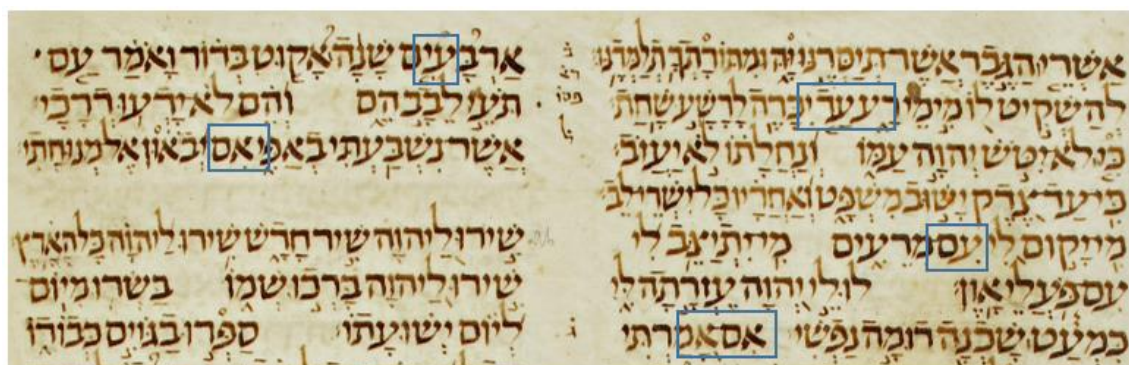 אשרי הגבר אשר תיסרנו יה ומתורתך תלמדנו
להשקיט לו מימי רע עד יכרה לרשע שחת
כי לא יטש יהוה עמו ונחלתו לא יעזב
כי עד צדק ישוב משפט ואחריו כל ישרי לב
מי יקום לי עם מרעים מי יתיצב לי
עם פעלי און לולי יהוה עזרתה לי
כמעט שכנה דומה נפשי אם אמרתי
ארבעים שנה אקוט בדור ואמר עם
תעי לבב הם והם לא ידעו דרכי
אשר נשבעתי באפי אם יבאון אל מנוחתי
שירו ליהוה שיר חדש שירו ליהוה כל הארץ
שירו ליהוה ברכו שמו בשרו מיום
ליום ישועתו ספרו בגוים כבודו